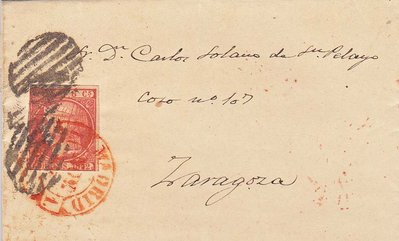 Sr. Dn. Carlos Solano de Sn. Pelayo
Coso nº 107
Zaragoza
MADRID